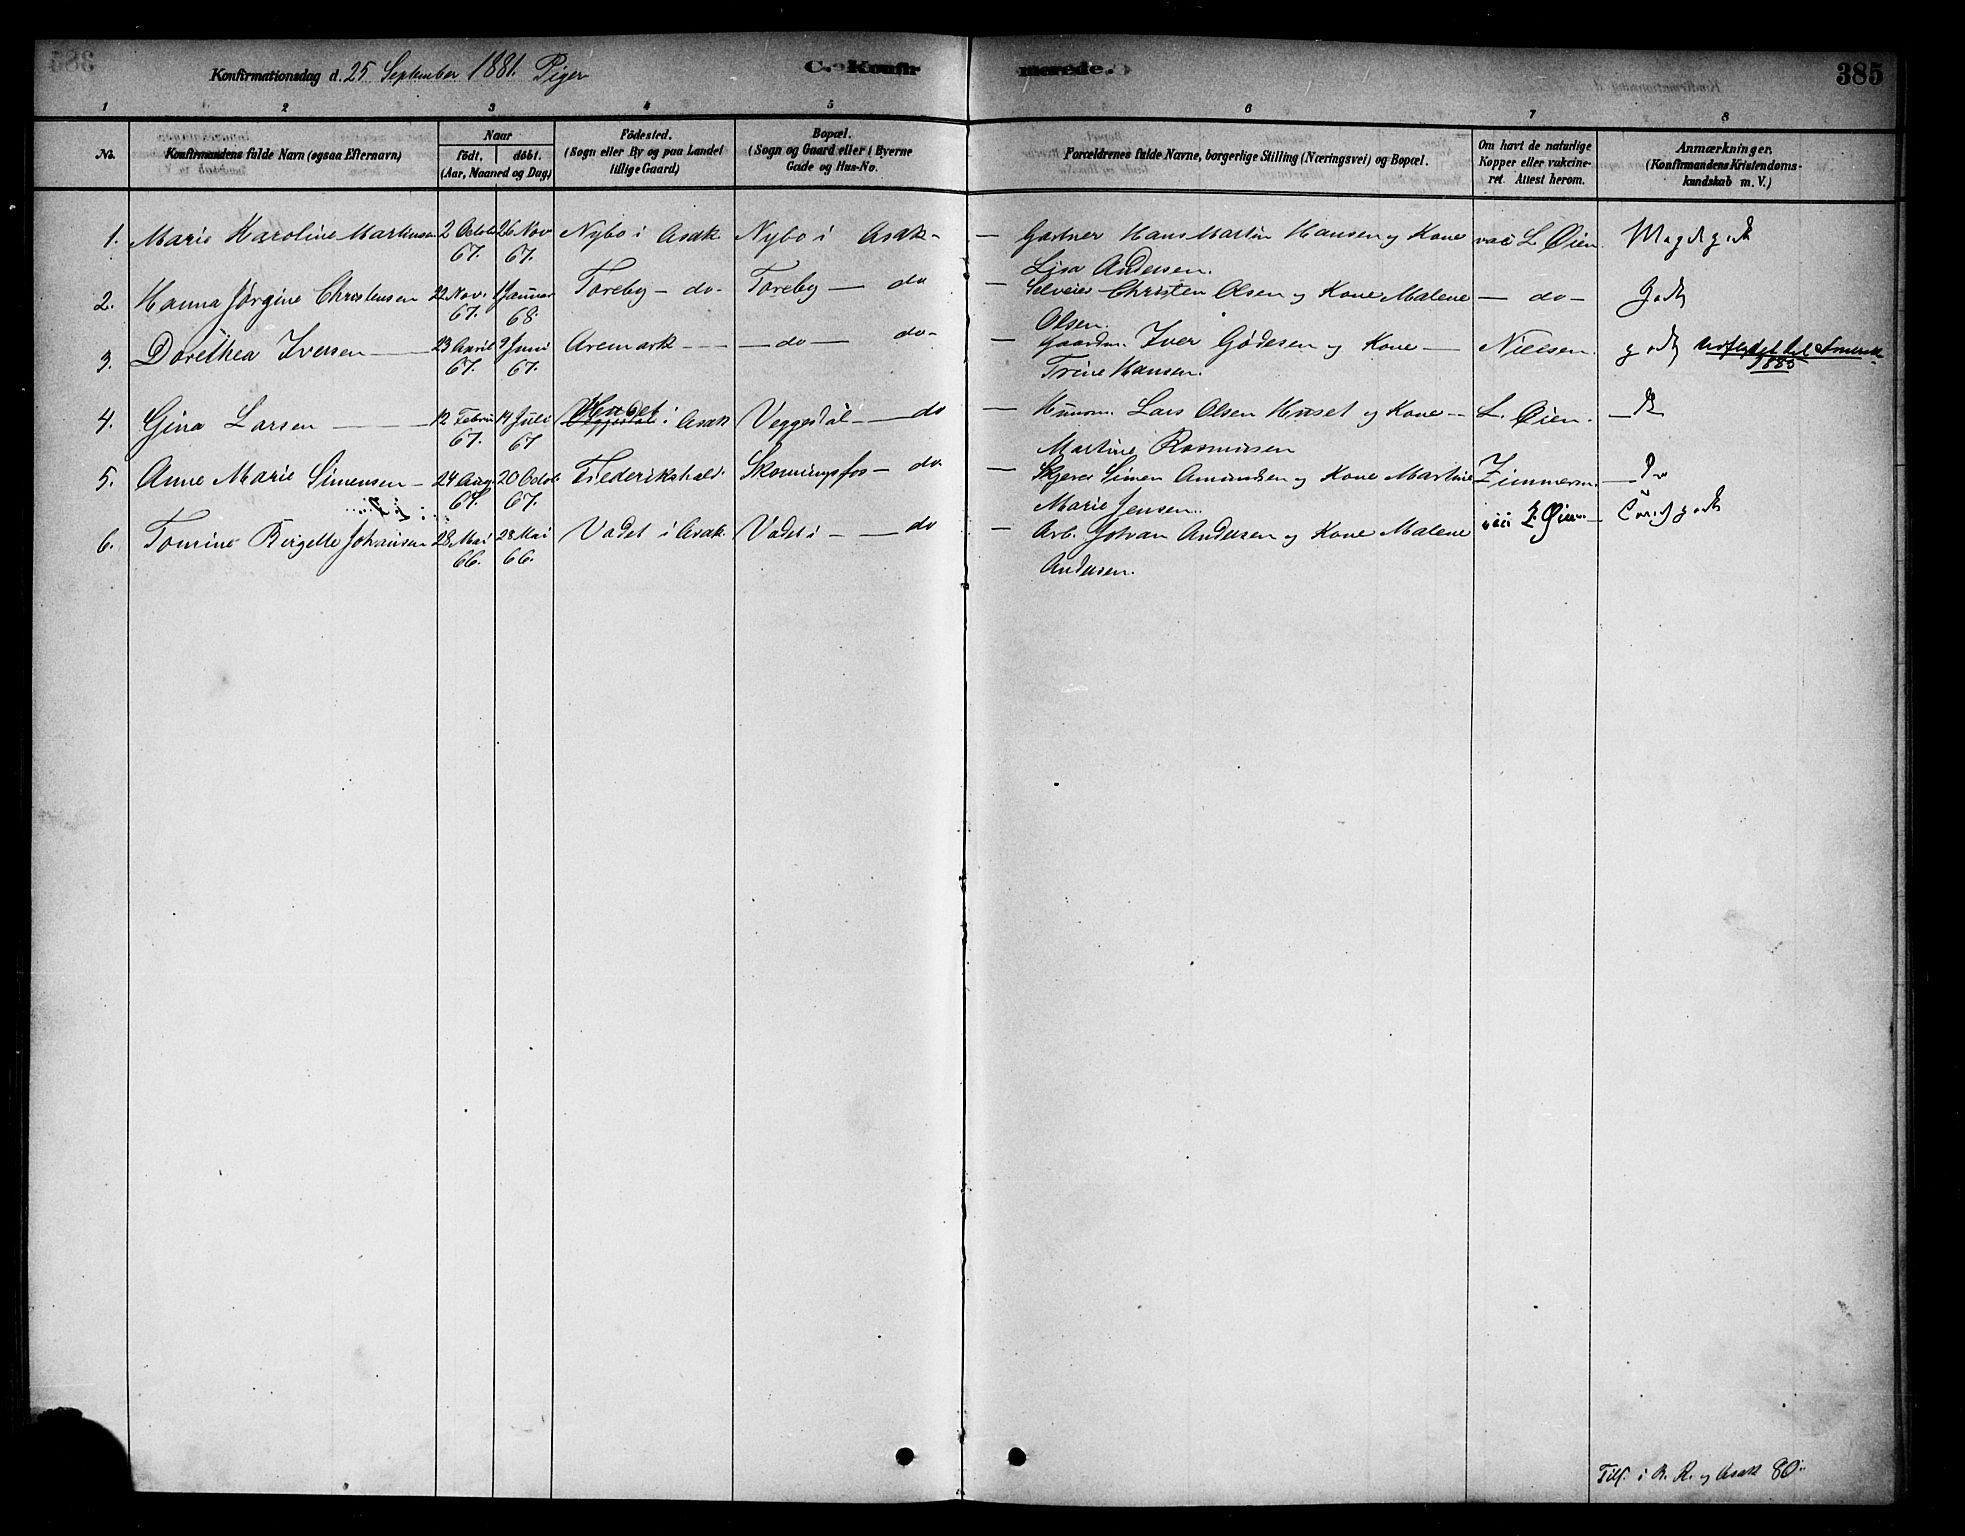 Konfirmationsdag d. 25 September 1881. Piger
C. Konfirmerede.
385
1 2 3 4 5 6 7 8
No.
Konfirmandens fulde Navn (ogsaa Efternavn)
Naar
födt. döbt.
(Aar, Maaned og Dag)
Födested.
(Sogn eller By og paa Landet
tillige Gaard)
Bopæl.
(Sogn og Gaard eller i Byerne
Gade og Hus-No.
Forældrenes fulde Navne, borgerlige Stilling (Næringsvei) og Bopæl.
Om havt de naturlige
Kopper eller vakcine-
ret. Attest herom.
Anmærkninger.
(Konfirmandens Kristendoms-
kundskab m. V.)
1. Marie Karoline Martinsen 2 Octob 26 Nov Nybo i Asak Nybo i Asak - — Gartner Hans Martin Hansen og Kone vac L. Øien. Meget godt
67. 67. Lisa Andersen.
2. Hanna Jørgine Christensen 22 Nov. 1 Januar Toreby - do - Toreby — do — Selveier Christen Olsen og Kone Malene — do — Godt
67. 68 Olsen.
3. Dorethea Iversen — 23 April 9 Juni Aremark — — — do — do - — Gaardm. Iver Gødesen og Kone — Nielsen. godt Udflyttet til Amerik
67. 67. Trine Hansen. 1885
4. Gina Larsen — 12 Febru 14 Juli Huset i Asak Veggesdal — do — Husm. Lars Olsen Huset og Kone — L. Øien.
67. 67 Martine Rasmussen
5. Anne Marie Simensen — 24 Aug. 20 Octob Frederikshald. Skonningsfos — do — Skjerer Simen Amundsen og Kone Martine Zimmerm. — Do
67. 67. Marie Jensen.
6. Tomine Birgette Johansen 28 Mai 28 Mai Vadet i Asak. Vadet i — — do — Arb. Johan Andersen og Kone Malene L. Øien — godt
66. 66. Andersen.
Tilf. i B. R. og Asak 80.